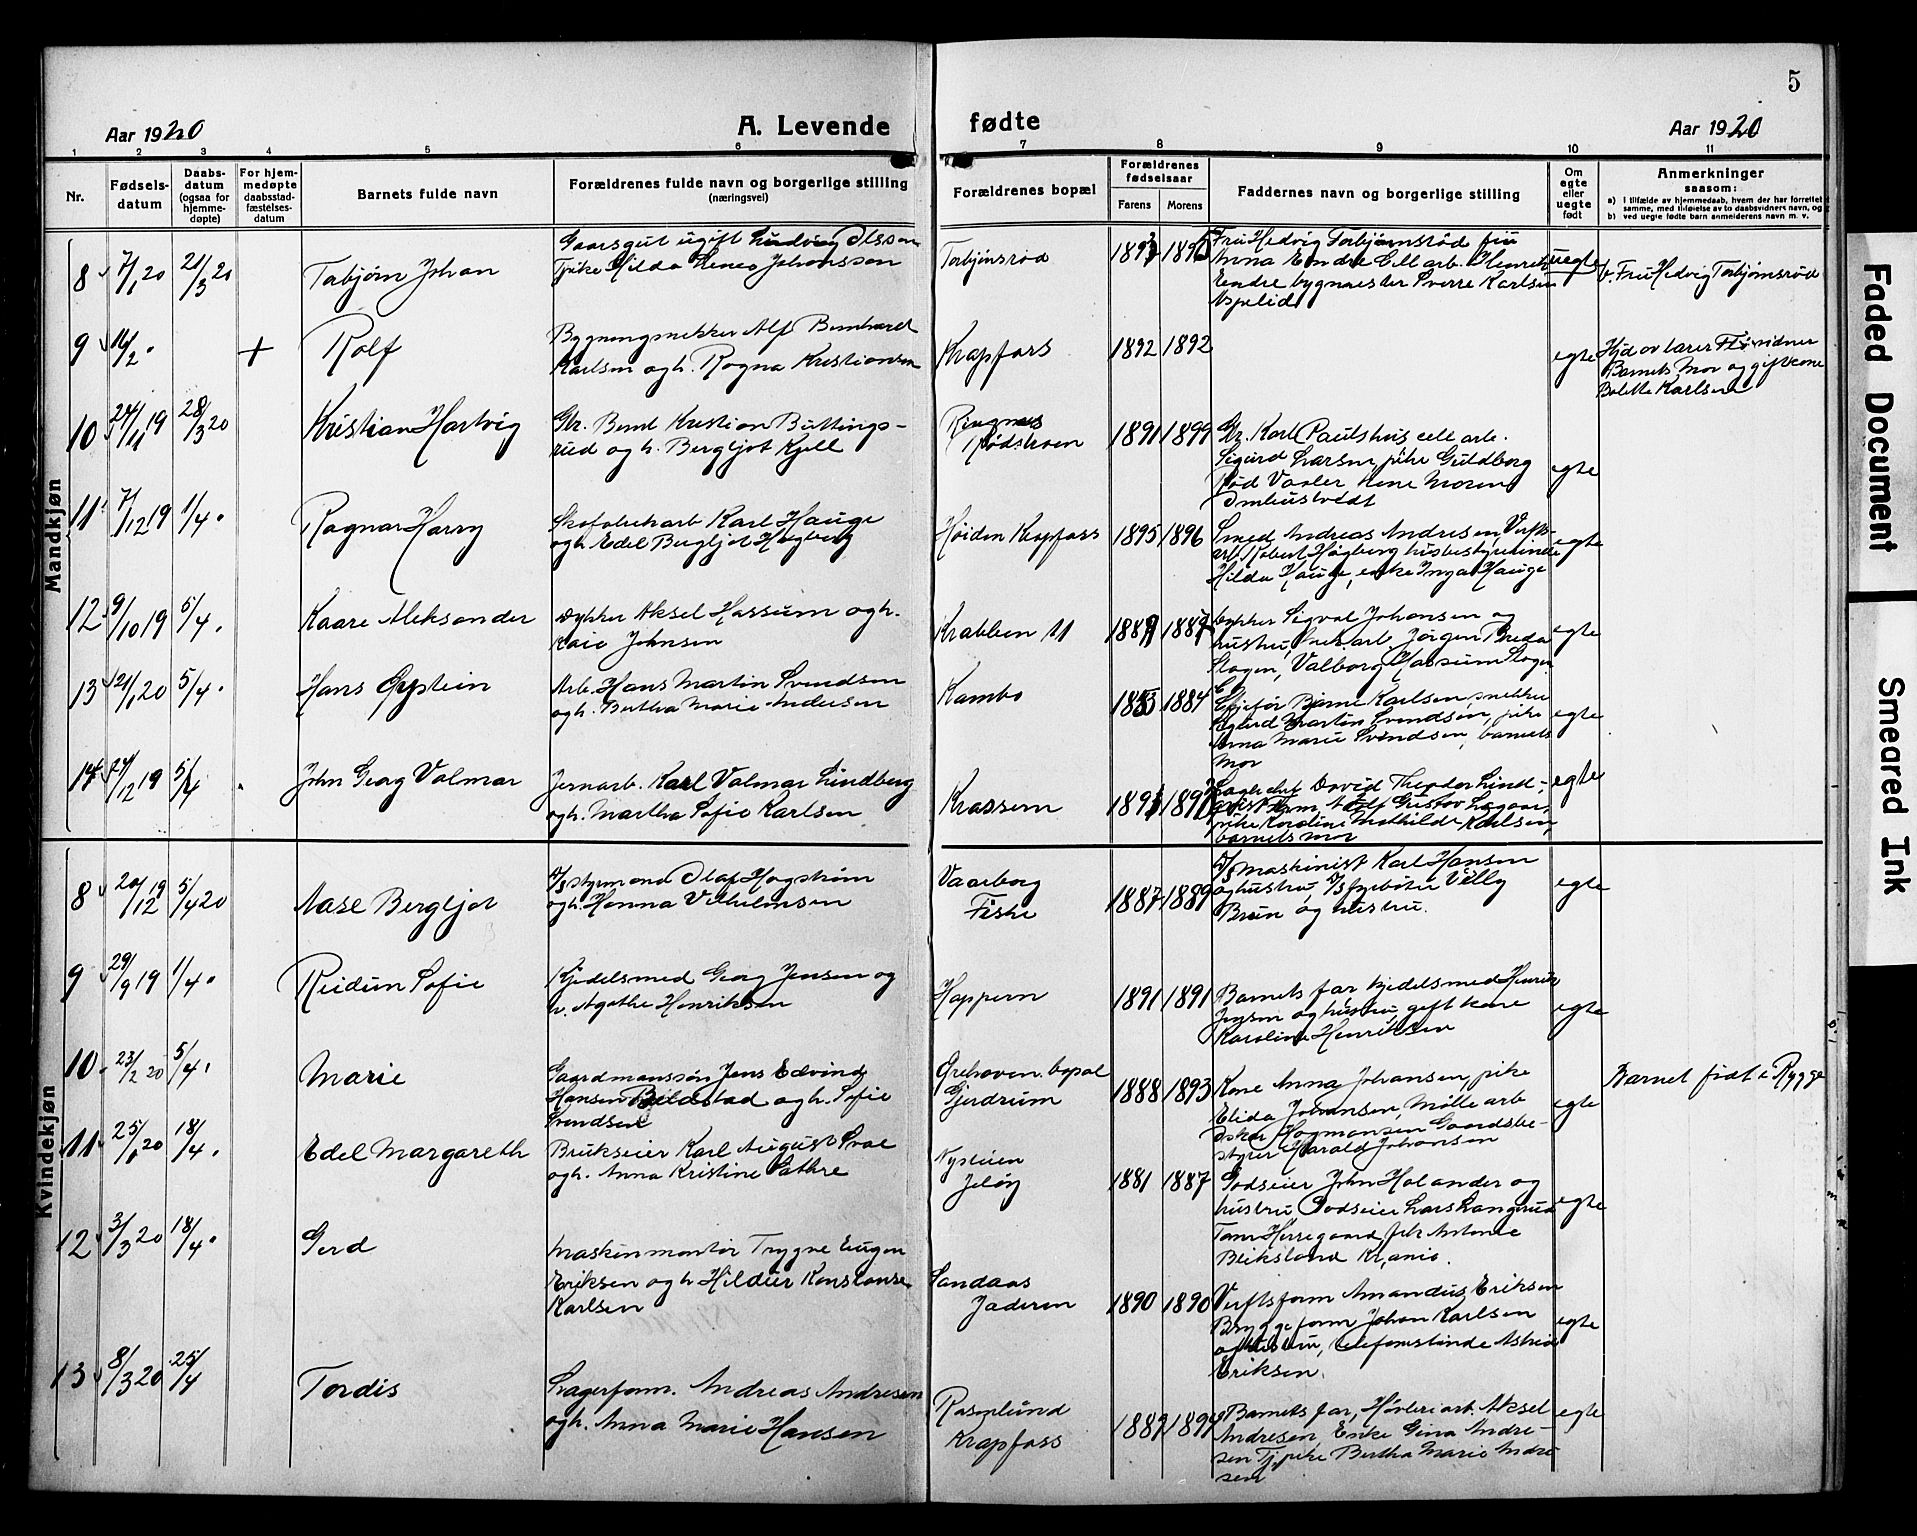 5
Aar 1920
A. Levende
fødte
Aar 1920
1 2 3 4 5 6 7 8 9 10 11
Nr.
Fødsels-
datum
Daabs-
datum
(ogsaa for
hjemme-
døpte)
For hjem-
medøpte
daabsstad-
fæstelses-
datum
Barnets fulde navn
Forældrenes fulde navn og borgerlige stilling
(næringsvei)
Forældrenes bopæl
Forældrenes
fødselsaar
Farens
Morens
Faddernes navn og borgerlige stilling
Om
egte
eller
uegte
født
Anmerkninger
saasom:
a) i tilfælde av hjemmedaab, hvem der har forrettet
samme, med tilføielse av to daabsvidners navn, og
b) ved uegte fødte barn anmelderens navn m. v.
Mandkjøn
8 7/1 20 21/3 20 Torbjørn Johan
Gaarsgut ugift Ludvig Olsson
Pike Hilda Johansson
Torbjønsrød
189 189
Fru Hedvig Torbjørnsrød fru
Anna Endre Ell arb. Henrik
Endre bygmester Sverre Karlsen
Aspelid
uegte
b. Fru Hedvig Torbjørnsrød
9 16/2 +
Rolf
Bygningsnekker Alf Bernhard
Karlsen og h. Ragna Kristiansen
Krapfoss
1892 1892
egte
Hjd av lærer Vidner
Barnets Mor og gift kone
Bolette Karlsen
10 24/11 19 28/3 20
Kristian Hartvig
Gbr. Bernt Kristian Buttings-
rud og h. Bergljot Kjell
Ringnes
Rødshaven
1891 1899
Gbr. Karl Paulshus cell arb.
Sigurd Larsen pike Guldborg
Rød Vaaler kone Maren
Omhustvedt
egte
11 7/12 19 1/4
Ragnar Harry
Skofabrikarb Karl Hauge
og h. Edel Bergljot Høgberg
Høiden Krapfoss
1895 1896
Smed Andreas Andresen, Verfts-
arb. Robert Høgberg husbestyrerinde
Hilda Hauge, enke Inga Hauge
egte
12 9/10 19 5/4
Kaare Aleksander
Dykker Aksel Hassum og h.
Kaia Johnsen
Krabben 11
188 1887
Sigval Johansen og
hustru, Jørgen Breda
Slagen, Valborg Hassum Slagen
egte
13 21/1 20 5/4
Hans Øystein
Arb. Hans Martin Svendsen
og h. Bertha Marie Andersen
Kambo
1883 1884
Bjarne Karlsen, snekker
Sigurd Martin Svendsen, pike
Anna Marie Svendsen, barnets
Mor
egte
14 24/12 19 5/4
John Georg Valmar
Jernarb. Karl Valmar Lindberg
og h. Martha Sofie Karlsen
Krassern
189 189
David Theodor Lind-
Gustav
pike Karoline Mathilde Karlsen,
barnets mor
egte
Kvindekjøn
8 20/12 19 5/4 20
Aase Bergljot
S/S styrmand Olaf Hagstrøm
og h. Hanna Vilhelmsen
Vaarborg
Feste
1887 1889
S/S maskinist Karl Hansen
og hustru, S/S fyrbøter Villy
Brun og hustru.
egte
9 29/9 19 1/4
Reidun Sofie
Kjedelsmed Georg Jensen og
h. Agathe Henriksen
Happern
1891 1891
Barnets far kjedelsmed Henrik
Jensen og hustru, gift kone
Karoline Henriksen
egte
10 23/2 20 5/4
Marie
Gaardmanssøn Jens Edvind
Hansen Bildstad og h. Sofie
Svendsen
Grehaven. bopæl
Gjerdrum
1888 1893
Kone Anna Johansen, pike
Elida Johansen, Mølle arb
Oskar Hagmansen Gaardsbe-
styrer Harald Johansen
egte
Barnet født i Rygge
11 25/1 20 18/4
Edel Margareth
Brukseier Karl August Svae
og h. Anna Kristine Sathre
Nystuen
Jeløy
1881 1887
Godseier John Holander og
hustru Godseier Lars Langrud
Tom Herregaard, frk Antonie
Bliksland Kr,ania.
egte
12 3/3 20 18/4
Gerd
Maskinmontør Trygve Eugen
Eriksen og h. Hildur Konstanse
Karlsen
Sandaas
Jaderen
1890 1890
Verftsform Amandus Eriksen
Bryggeform Johan Karlsen
og hustru, telefonistinde Astrid
Eriksen.
egte
13 8/3 20 25/4
Tordis
Lagerform. Andreas Andresen
og h. Anna Marie Hansen
Rosenlund
Krapfoss
1889 189
Barnets far, Høvleriarb. Aksel
Andresen Enke Gina Andre-
sen Tj.pike Bertha Marie Andre
sen
egte
Faded Document
Smeared Ink